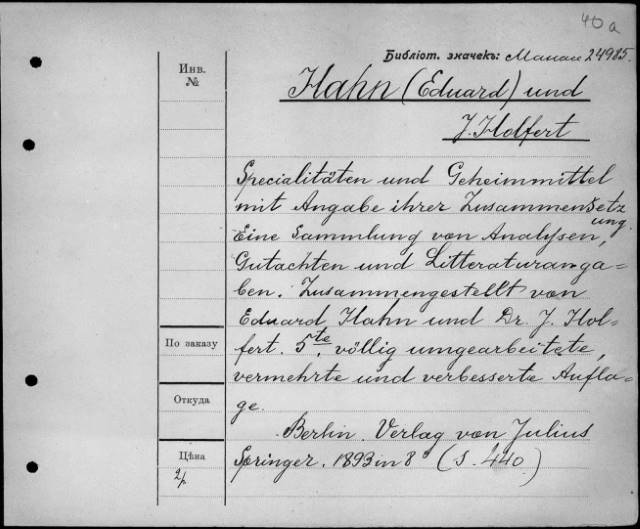 40a
Библіот. значекъ: 24985.
Инв.
№
Hahn (Eduard) und
J. Holfert
Specialitäten und Geheimmittel
mit Angabe ihrer Zusammensetz
ung.
Eine Sammlung von Analysen,
Gutachten und Litteraturanga-
ben. Zusammengestellt von
Eduard Hahn und Dr. J. Hol-
По заказу
fert. 5te, völlig umgearbeitete,
vermehrte und verbesserte Aufla-
Откуда
ge.
Berlin. Verlag von Julius
Цѣна
Springer. 1893 in 8° (S. 440)